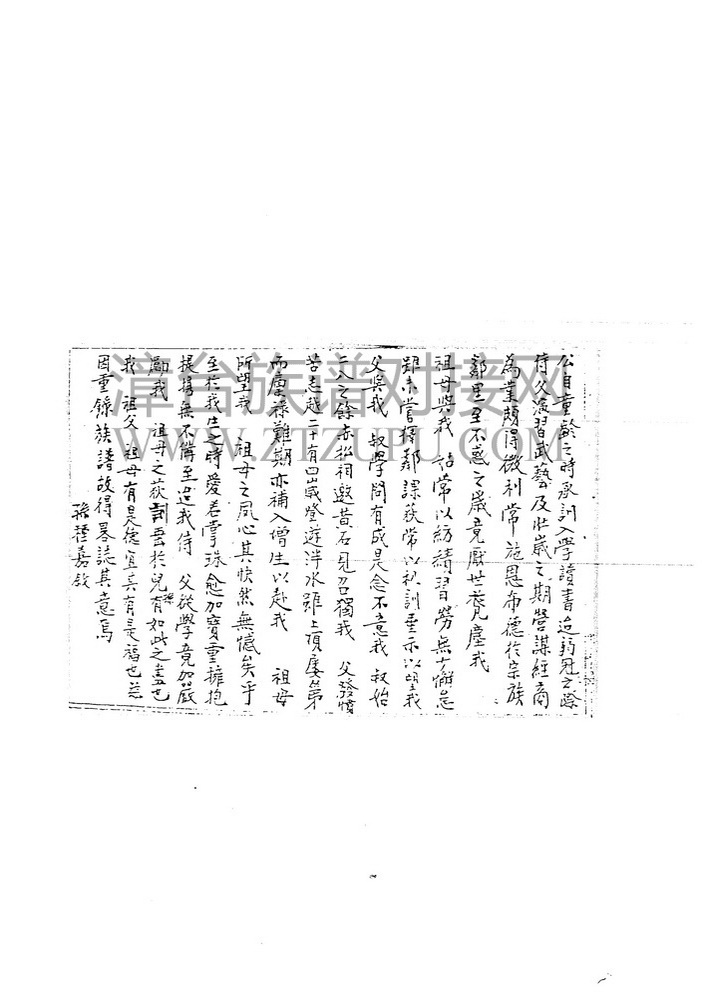 公自童齡之時承訓入學讀書迨弱冠之際
侍父演習武藝及壯歲之期營謀經商
為業頗得微利常施恩布德於宗族
鄰里至不惑之歲竟厭世長塵我
祖母與我 常以紡績習勞無少懈怠
雖未嘗 課兹常以 訓重亦以望我
父與我 叔學問有成是念不意我 叔始
二八之餘赤松祠邀黃石見召獨我 父發憤
苦志越二十有四歲登遊泮水雖上項屢第
而廩祿難期亦補入增生以赴我 祖母
所望我 祖母之夙心其快然無憾矣乎
至於我生之時愛若掌珠愈加寶重擁抱
提攜無不備至迨我侍 父從學竟加嚴
勵我 祖母之荻 於兒孫有如此之 也
我 祖父 祖母有是德宜其有是福也茲
因重錄族譜故得畧誌其意焉
孫 嘉敬
漳台族谱对接网
WWW.ZTZUPU.COM